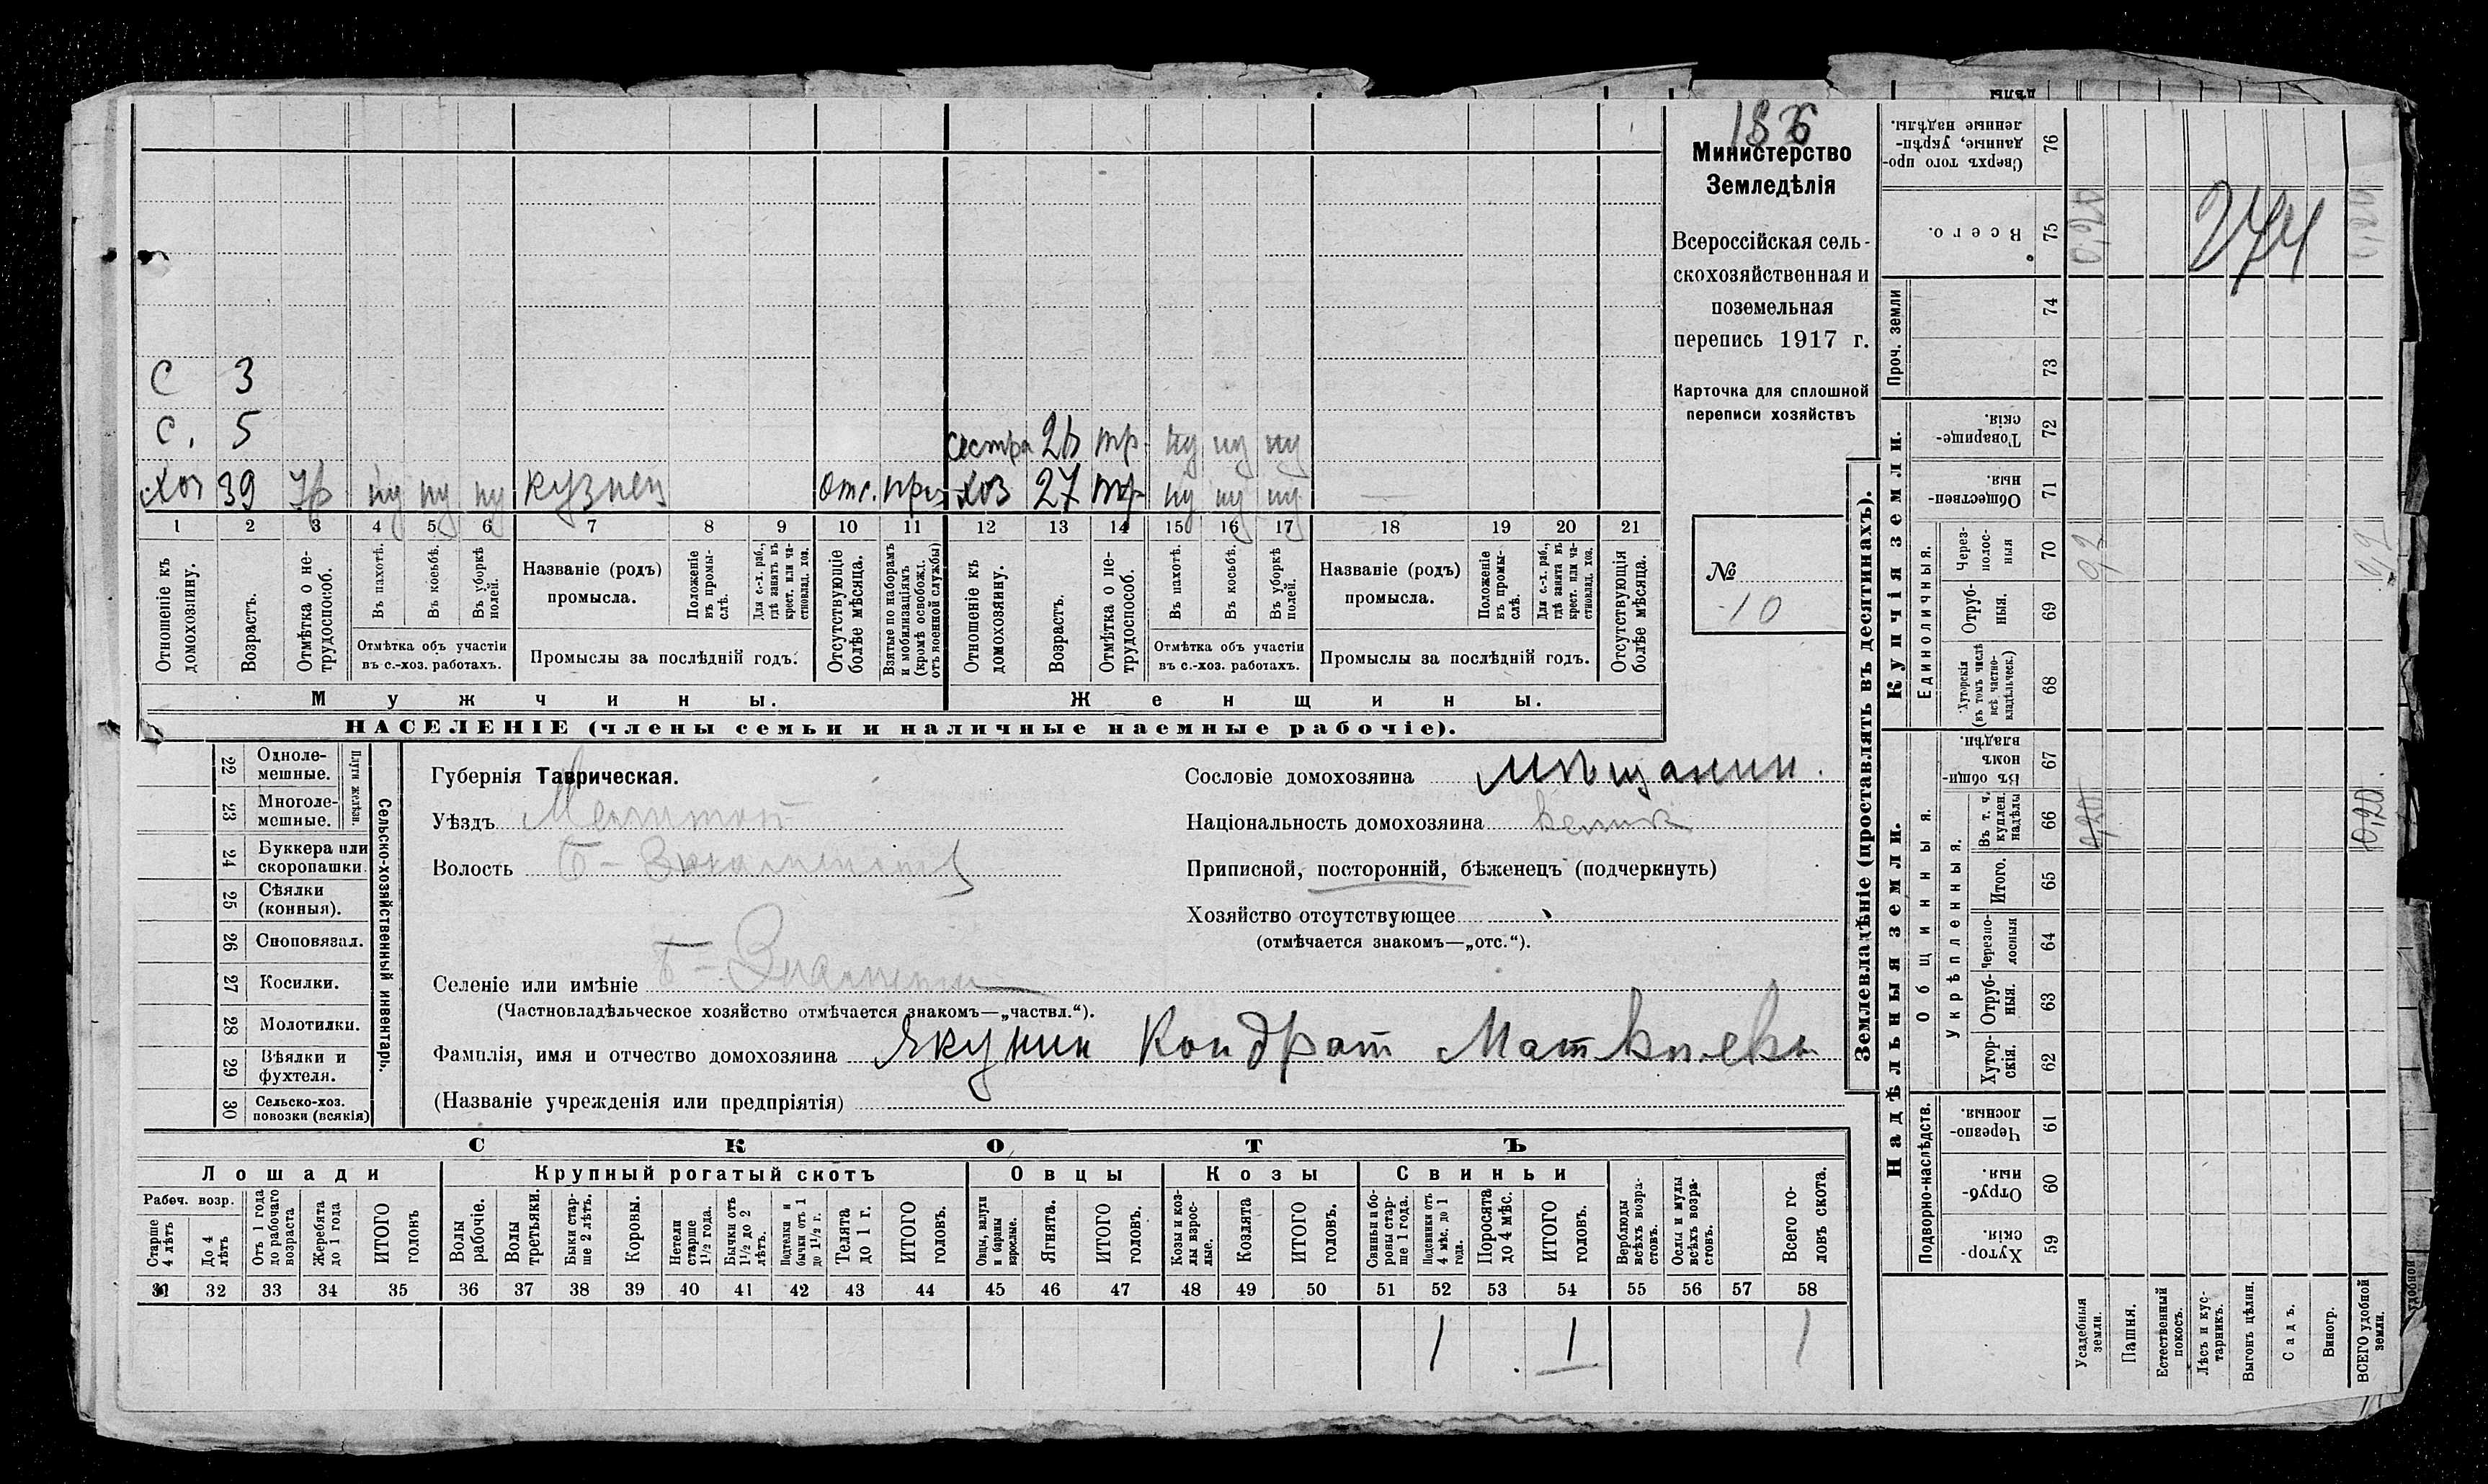 186
Министерство
Земледѣлія
Всероссійская сель-
скохозяйственная и
поземельная
перепись 1917 г.
Карточка для сплошной
переписи хозяйствъ
№
10
С 3
С. 5
сестра тр ну ну ну
Хоз 39 ну ну ну кузнец отс. хоз 27 тр ну ну ну —
1 2 3 4 5 6 7 8 9 10 11 12 13 14 15 16 17 18 19 20 21
Отношеніе къ домохозяину.
Возрастъ.
Отмѣтка о не-трудоспособ.
Въ пахотѣ.
Въ косьбѣ.
Въ уборкѣ полей.
Отмѣтка объ участіи
въ с.-хоз. работахъ.
Названіе (родъ)
промысла.
Положеніе въ промы-слѣ.
Для с.-х. раб., гдѣ занятъ въ крест. или ча-стновлад. хоз.
Промыслы за послѣдній годъ.
Отсутствующіе болѣе мѣсяца.
Взятые по наборамъ и мобилизаціямъ (кромѣ освобожд. отъ военной службы)
Отношеніе къ домохозяину.
Возрастъ.
Отмѣтка о не-трудоспособ.
Въ пахотѣ.
Въ косьбѣ.
Въ уборкѣ полей.
Отмѣтка объ участіи
въ с.-хоз. работахъ.
Названіе (родъ)
промысла.
Положеніе въ промы-слѣ.
Для с.-х. раб., гдѣ занята въ крест. или ча-стновлад. хоз.
Промыслы за послѣдній годъ.
Отсутствующія болѣе мѣсяца.
Мужчины. Женщины.
НАСЕЛЕНІЕ (члены семьи и наличные наемные рабочіе).
Сельско-хозяйственный инвентарь.
Плуги желѣзн.
22 Однолемешные.
23 Многолемешные.
24 Буккера или скоропашки.
25 Сѣялки (конныя).
26 Сноповязал.
27 Косилки.
28 Молотилки.
29 Вѣялки и фухтеля.
30 Сельско-хоз. повозки (всякія)
Губернія Таврическая.
Уѣздъ Мелитоп
Волость
Селеніе или имѣніе
(Частновладѣльческое хозяйство отмѣчается знакомъ—„частвл.“).
Фамилія, имя и отчество домохозяина Якунин Кондрат Матвѣевъ
(Названіе учрежденія или предпріятія)
Сословіе домохозяина мѣщанин.
Національность домохозяина велик
Приписной, посторонній, бѣженецъ (подчеркнуть)
Хозяйство отсутствующее
(отмѣчается знакомъ—„отс.“).
СКОТЪ
Лошади Крупный рогатый скотъ Овцы Козы Свиньи
Рабоч. возр.
Старше 4 лѣтъ
До 4 лѣтъ
Отъ 1 года до рабочаго возраста
Жеребята до 1 года
ИТОГО головъ
Волы рабочіе.
Волы третьяки.
Быки стар-ше 2 лѣтъ.
Коровы.
Нетели старше 1½ года.
Бычки отъ 1½ до 2 лѣтъ.
Подтелки и бычки отъ 1 до 1½ г.
Телята до 1 г.
ИТОГО головъ.
Овцы, валухи и бараны взрослые.
Ягнята.
ИТОГО головъ.
Козы и коз-лы взрос-лые.
Козлята
ИТОГО головъ.
Свиньи и бо-ровы стар-ше 1 года.
Подсвинки отъ 4 мѣс. до 1 года.
Поросята до 4 мѣс.
ИТОГО головъ.
Верблюды всѣхъ возра-стовъ.
Ослы и мулы всѣхъ возра-стовъ.
Всего го-ловъ скота.
31 32 33 34 35 36 37 38 39 40 41 42 43 44 45 46 47 48 49 50 51 52 53 54 55 56 57 58
1 1 1
Землевладѣніе (проставлять въ десятинахъ).
Купчія земли.
Надѣльныя земли.
Проч. земли
Единоличныя.
Общинныя.
Укрѣпленныя.
Подворно-наслѣдств.
76 Сверхъ того про-данные, укрѣп-ленные надѣлы.
75 Всего. 0,20
274
0,20
74
73
72 Товарище-скія.
71 Обществен-ныя.
70 Через-полос-ныя
69 Отруб-ныя.
68 Хуторскія (въ томъ числѣ всѣ частно-владѣльческ.)
67 Въ общин-номъ владѣн.
66 Въ т. ч. куплен. надѣлы 0,20 0,20
65 Итого.
64 Черезпо-лосныя
63 Отруб-ныя.
62 Хутор-скія.
61 Черезпо-лосныя.
60 Отруб-ныя.
59 Хутор-скія.
Усадебныя земли.
Пашня.
Естественный покосъ.
Лѣсъ и кус-тарникъ.
Выгонъ цѣлин.
Садъ.
Виногр.
ВСЕГО удобной земли.